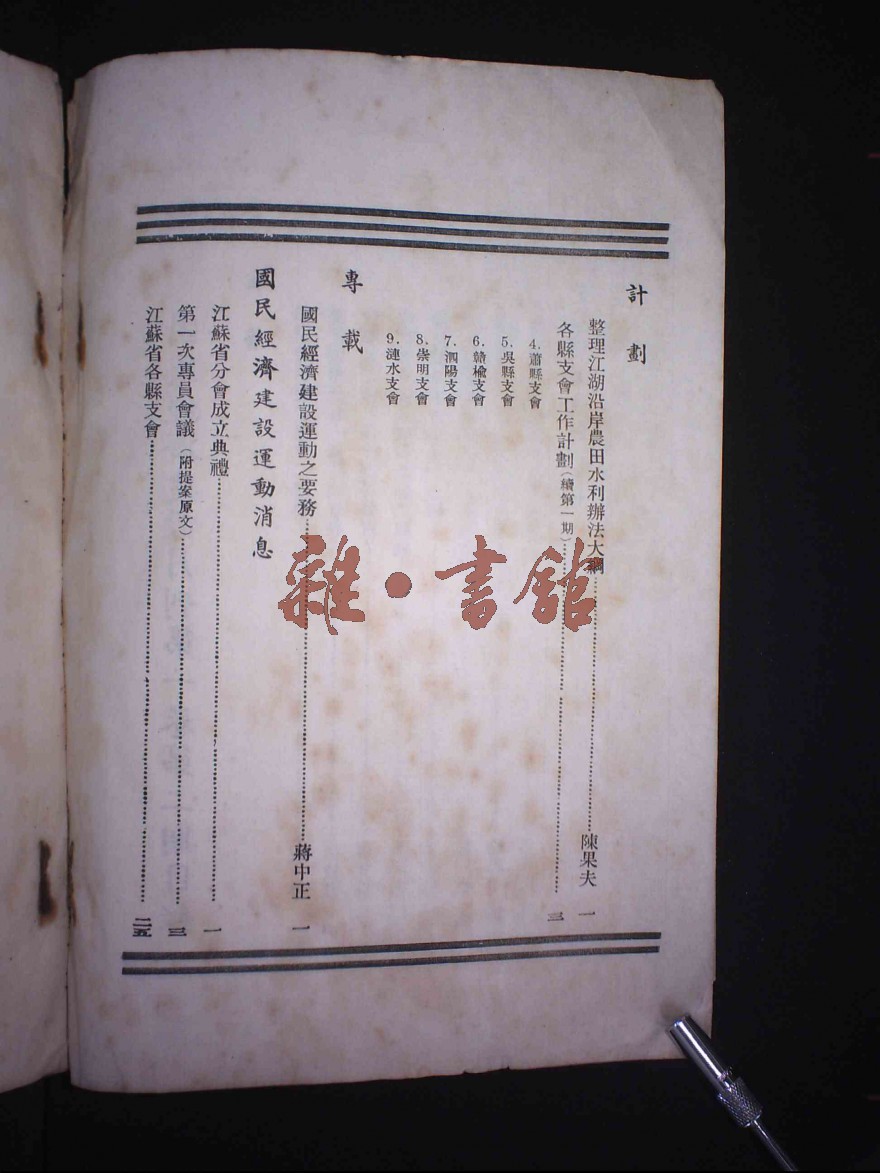 計劃
整理江湖沿岸農田水利辦法大綱……陳果夫 一
各縣支會工作計劃(續第一期)……三
4.蕭縣支會
5.吳縣支會
6.贛榆支會
7.泗陽支會
8.崇明支會
9.漣水支會
專載
國民經濟建設運動之要務……蔣中正 一
國民經濟建設運動消息
江蘇省分會成立典禮……一
第一次專員會議(附提案原文)……三
江蘇省各縣支會……二五
雜·書館